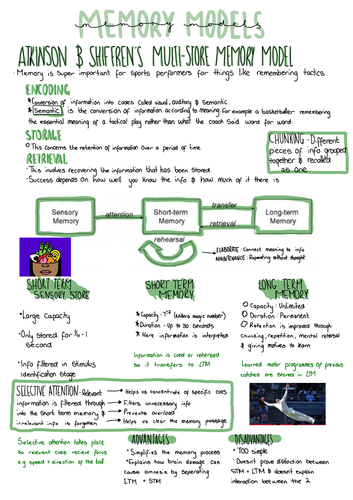 MEMORY MODELS
memory models
ATKINSON & SHIFFREN'S MULTI-STORE MEMORY MODEL
· Memory is super important for sports performers for things like remembering tactics
ENCODING
Conversion of information into codes called visual, auditory & semantic.
Semantic is the conversion of information according to meaning. For example a basketballer remembering
the essential meaning of a tactical play rather than what the coach said word for word
STORAGE
This concerns the retention of information over a period of time
RETRIEVAL
· This involves recovering the information that has been stored.
· Success depends on how well you know the info & how much of it there is
CHUNKING - Different
pieces of info grouped
together & recalled
as one
Sensory
Memory
attention
Short-term
Memory
transfer
retrieval
Long-term
Memory
rehearsal
ELABORATE: Connect meaning to info
MAINTENANCE: Repeating without thought
SHORT TERM
SENSORY STORE
· Large Capacity
· Only stored for ¼-1
second
· Info filtered in Stimulus
Identification Stage
SHORT TERM
MEMORY
Capacity - 7±2 (Millers magic number)
Duration - Up to 30 seconds
Here information is interpreted
Information is cued or rehersed
so it transfers to LTM
LONG TERM
MEMORY
Capacity: Unlimited
Duration: Permanent
Retention is improved through
chunking, repetition, mental rehersal
& giving motives to learn
Learned motor programmes of previous
catches are stored in LTM
SELECTIVE ATTENTION - Relevant
information is filtered through
into the short term memory &
irrelevant info is forgotten
Helps us concentrate of specific cues
Filters unnecessary info
Prevents overload
Helps us clear the memory passage
Selective attention takes place
so relevant cues recieve focus
e.g speed + direction of the ball
ADVANTAGES
· Simplifies the memory process
· Explains how brain damage can
cause amnesia by seperating
LTM + STM
DISADVANTAGES
· TOO simple
· Doesnt prove distinction between
STM + LTM & doesnt explain
interaction between the 2